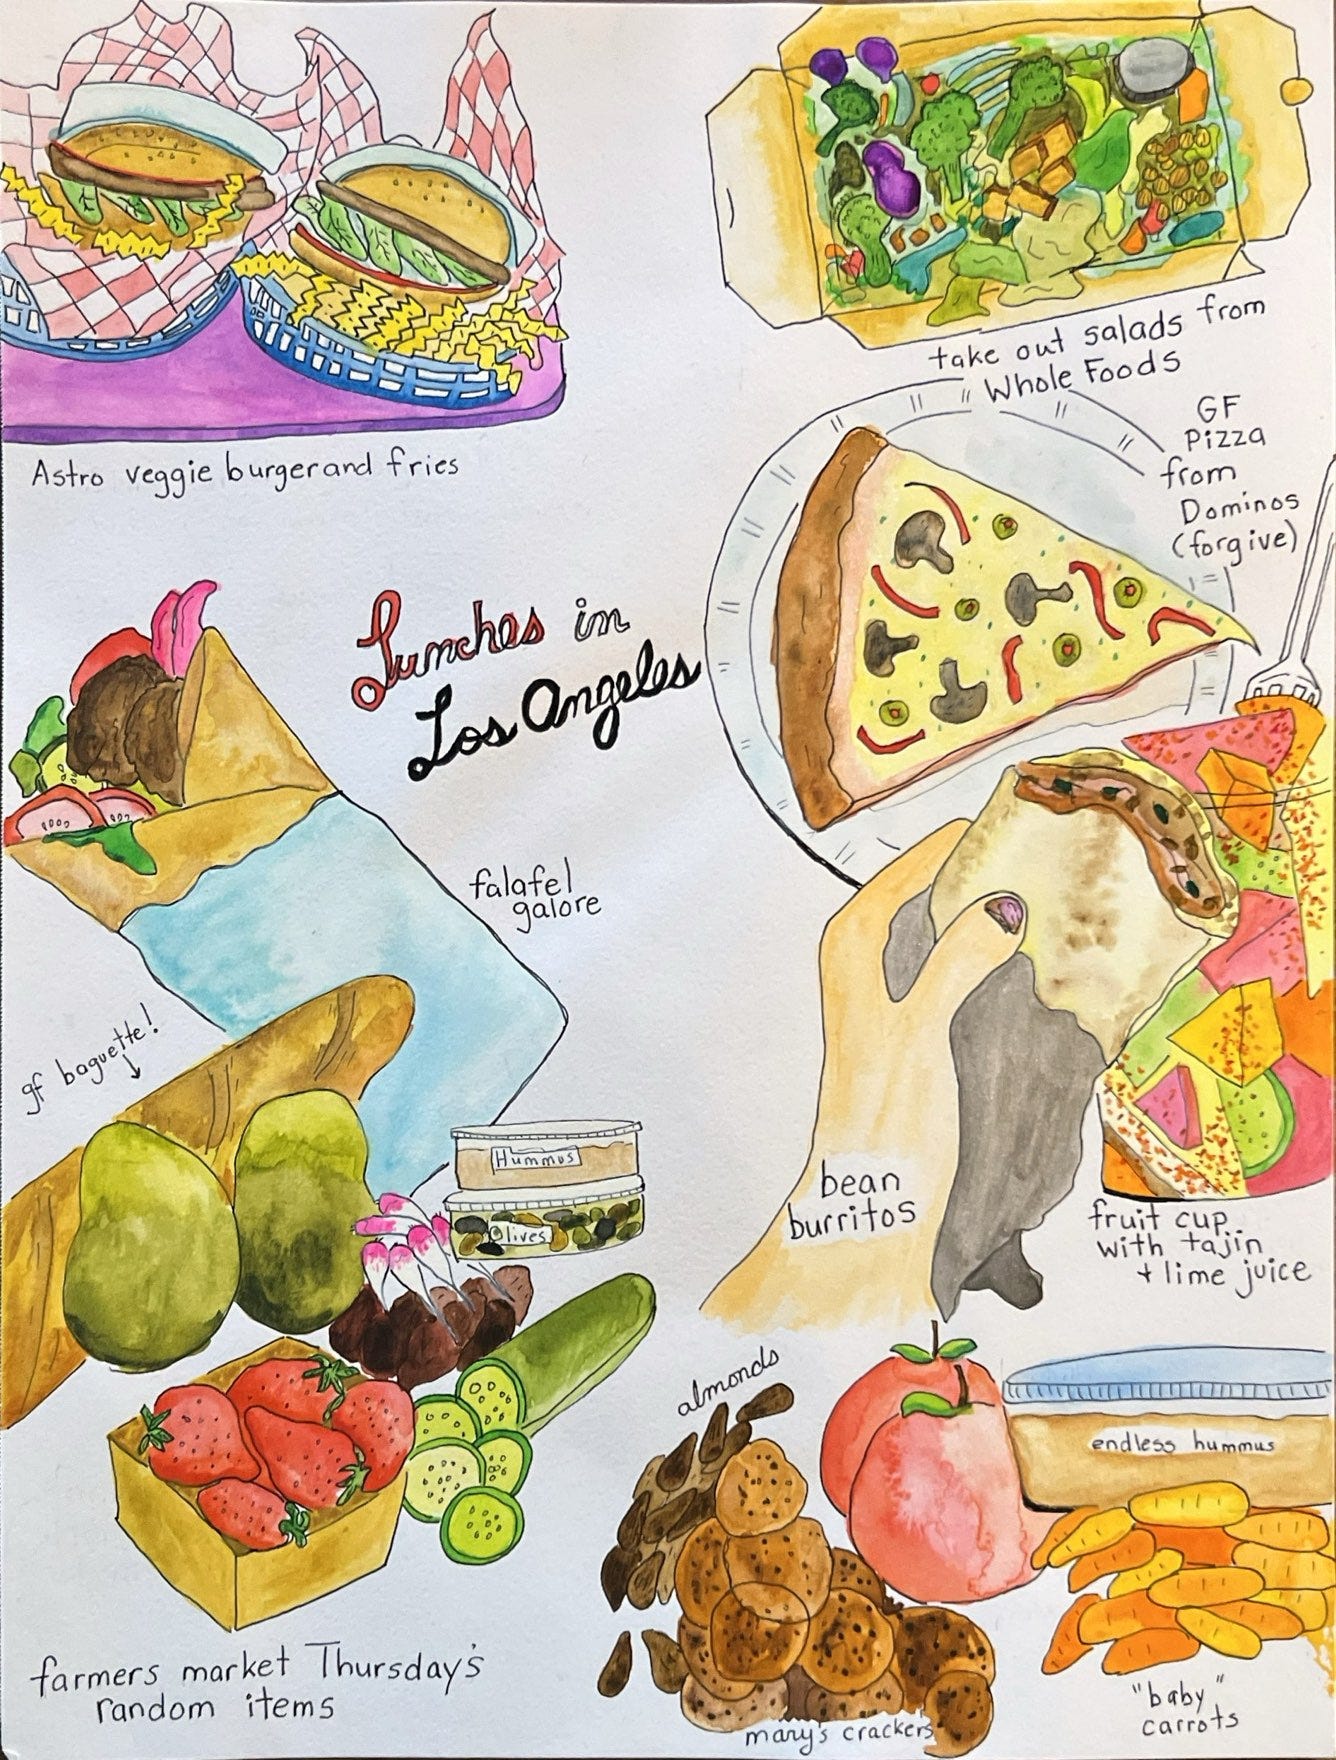 take out salads from
Whole Foods
Astro veggie burger and fries
GF
Pizza
from
Dominos
(forgive)
Lunches in
Los Angeles
falafel
galore
gf baguette!
Hummus
Olives
bean
burritos
fruit cup
with tajin
+ lime juice
almonds
endless hummus
farmers market Thursday's
random items
mary's crackers
"baby"
carrots